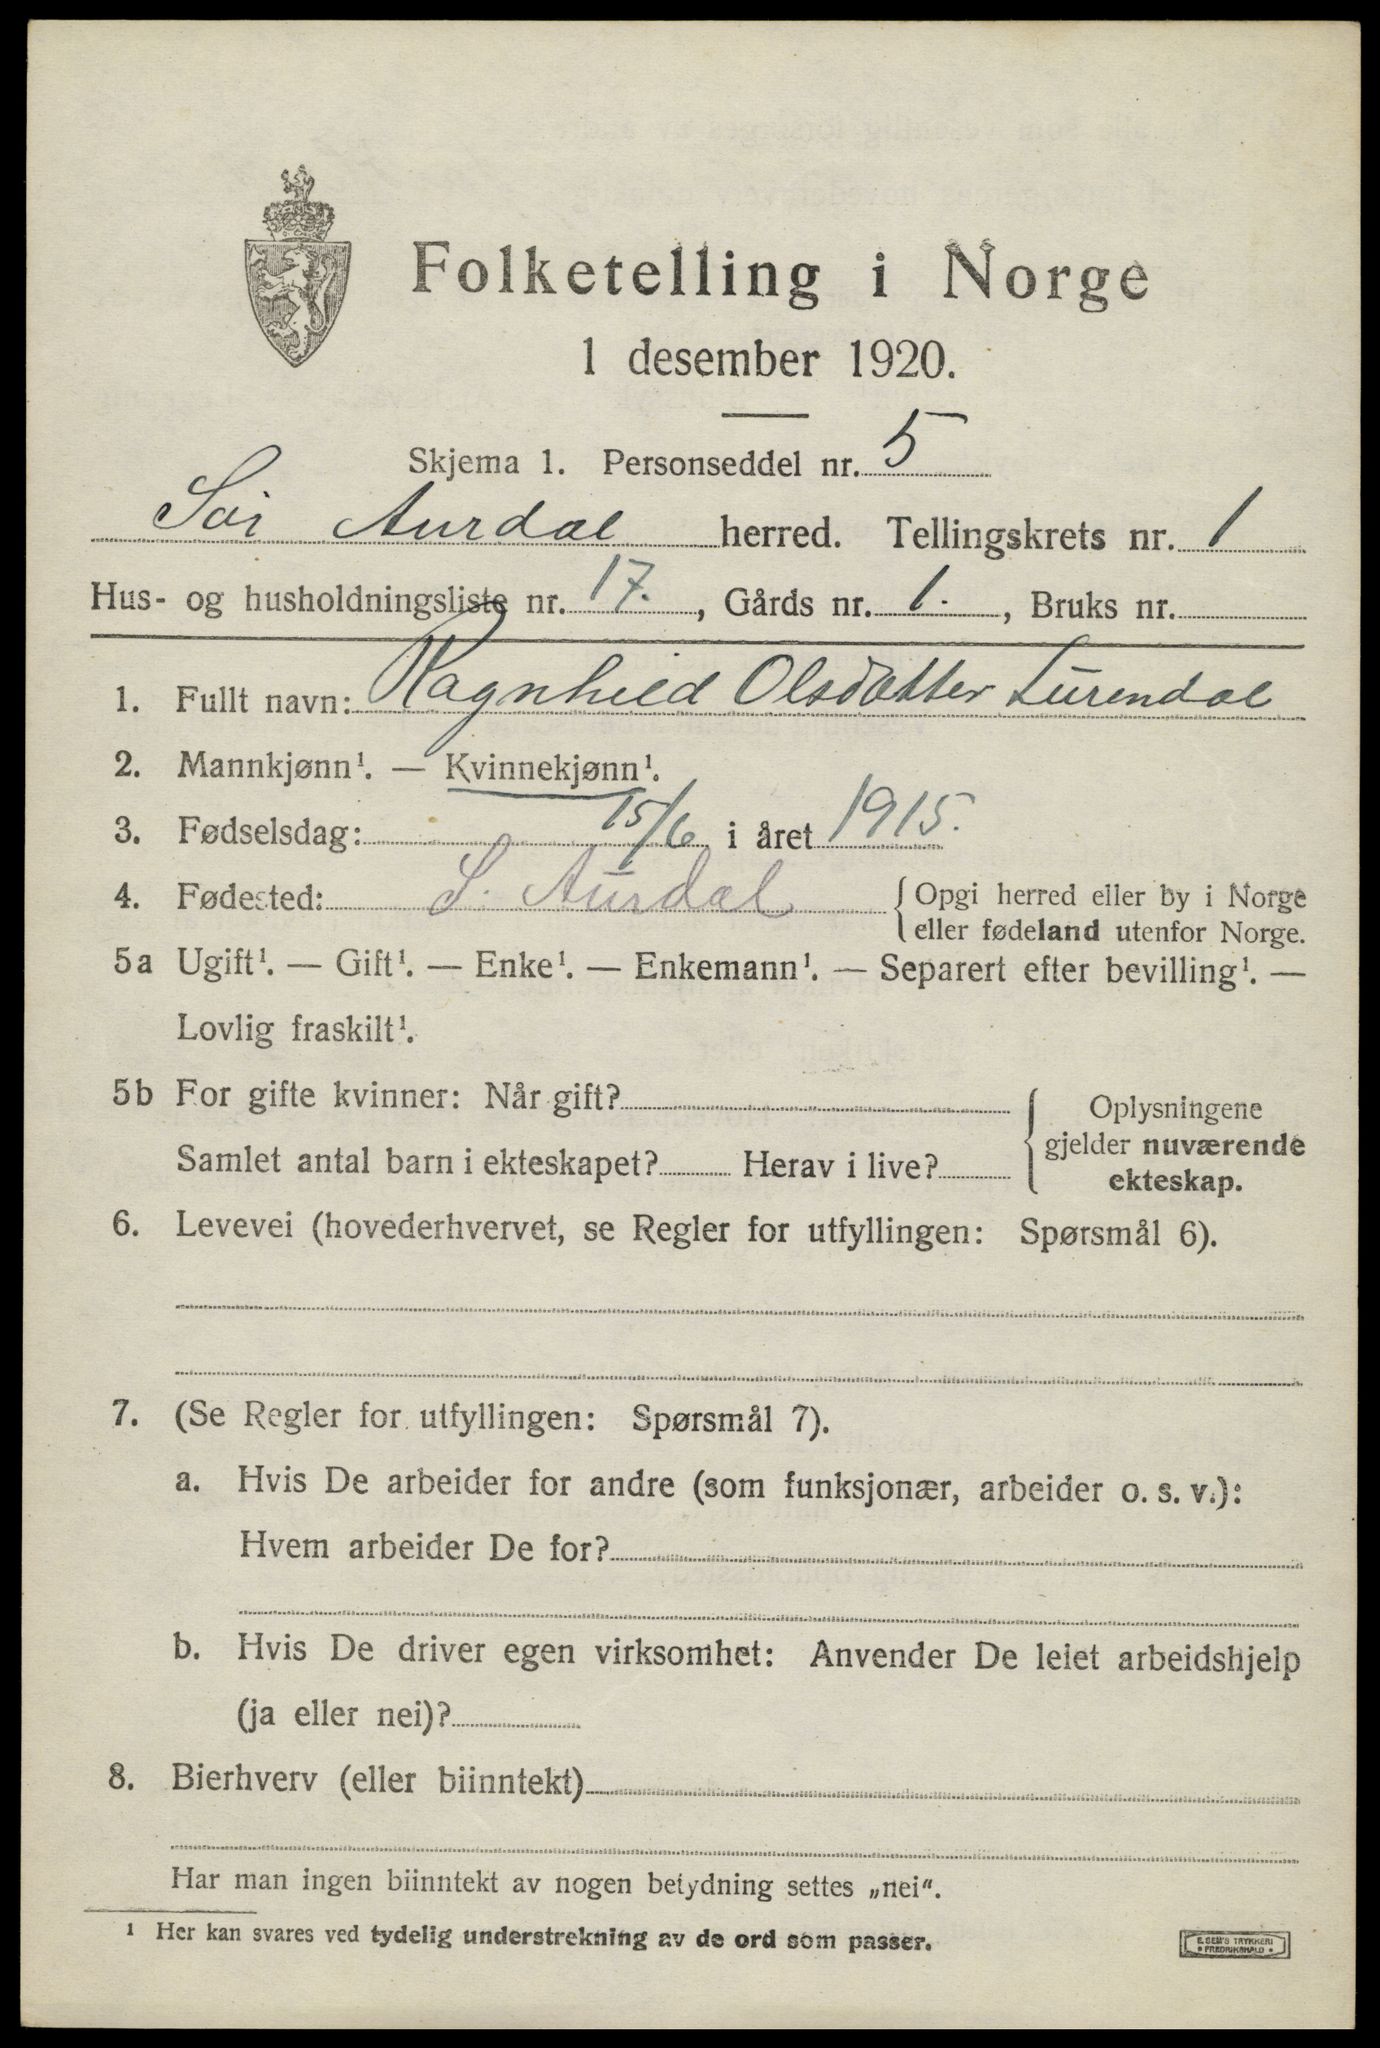 Folketelling i Norge
1 desember 1920.
Skjema 1. Personseddel nr. 5
Sør Aurdal herred. Tellingskrets nr. 1
Hus- og husholdningsliste nr. 17., Gårds nr. 1., Bruks nr.
1. Fullt navn: Ragnhild Olsdatter Lurendal
2. Mannkjønn¹. — Kvinnekjønn¹.
3. Fødselsdag: 15/6 i året 1915.
4. Fødested: S. Aurdal { Opgi herred eller by i Norge
eller fødeland utenfor Norge.
5a Ugift¹. — Gift¹. — Enke¹. — Enkemann¹. — Separert efter bevilling¹. —
Lovlig fraskilt¹.
5b For gifte kvinner: Når gift?
Samlet antal barn i ekteskapet? Herav i live?
{ Oplysningene
gjelder nuværende
ekteskap.
6. Levevei (hovederhvervet, se Regler for utfyllingen: Spørsmål 6).
7. (Se Regler for utfyllingen: Spørsmål 7).
a. Hvis De arbeider for andre (som funksjonær, arbeider o. s. v.):
Hvem arbeider De for?
b. Hvis De driver egen virksomhet: Anvender De leiet arbeidshjelp
(ja eller nei)?
8. Bierhverv (eller biinntekt)
Har man ingen biinntekt av nogen betydning settes „nei“.
¹ Her kan svares ved tydelig understrekning av de ord som passer.
E. SEM'S TRYKKERI
• FREDRIKSHALD •